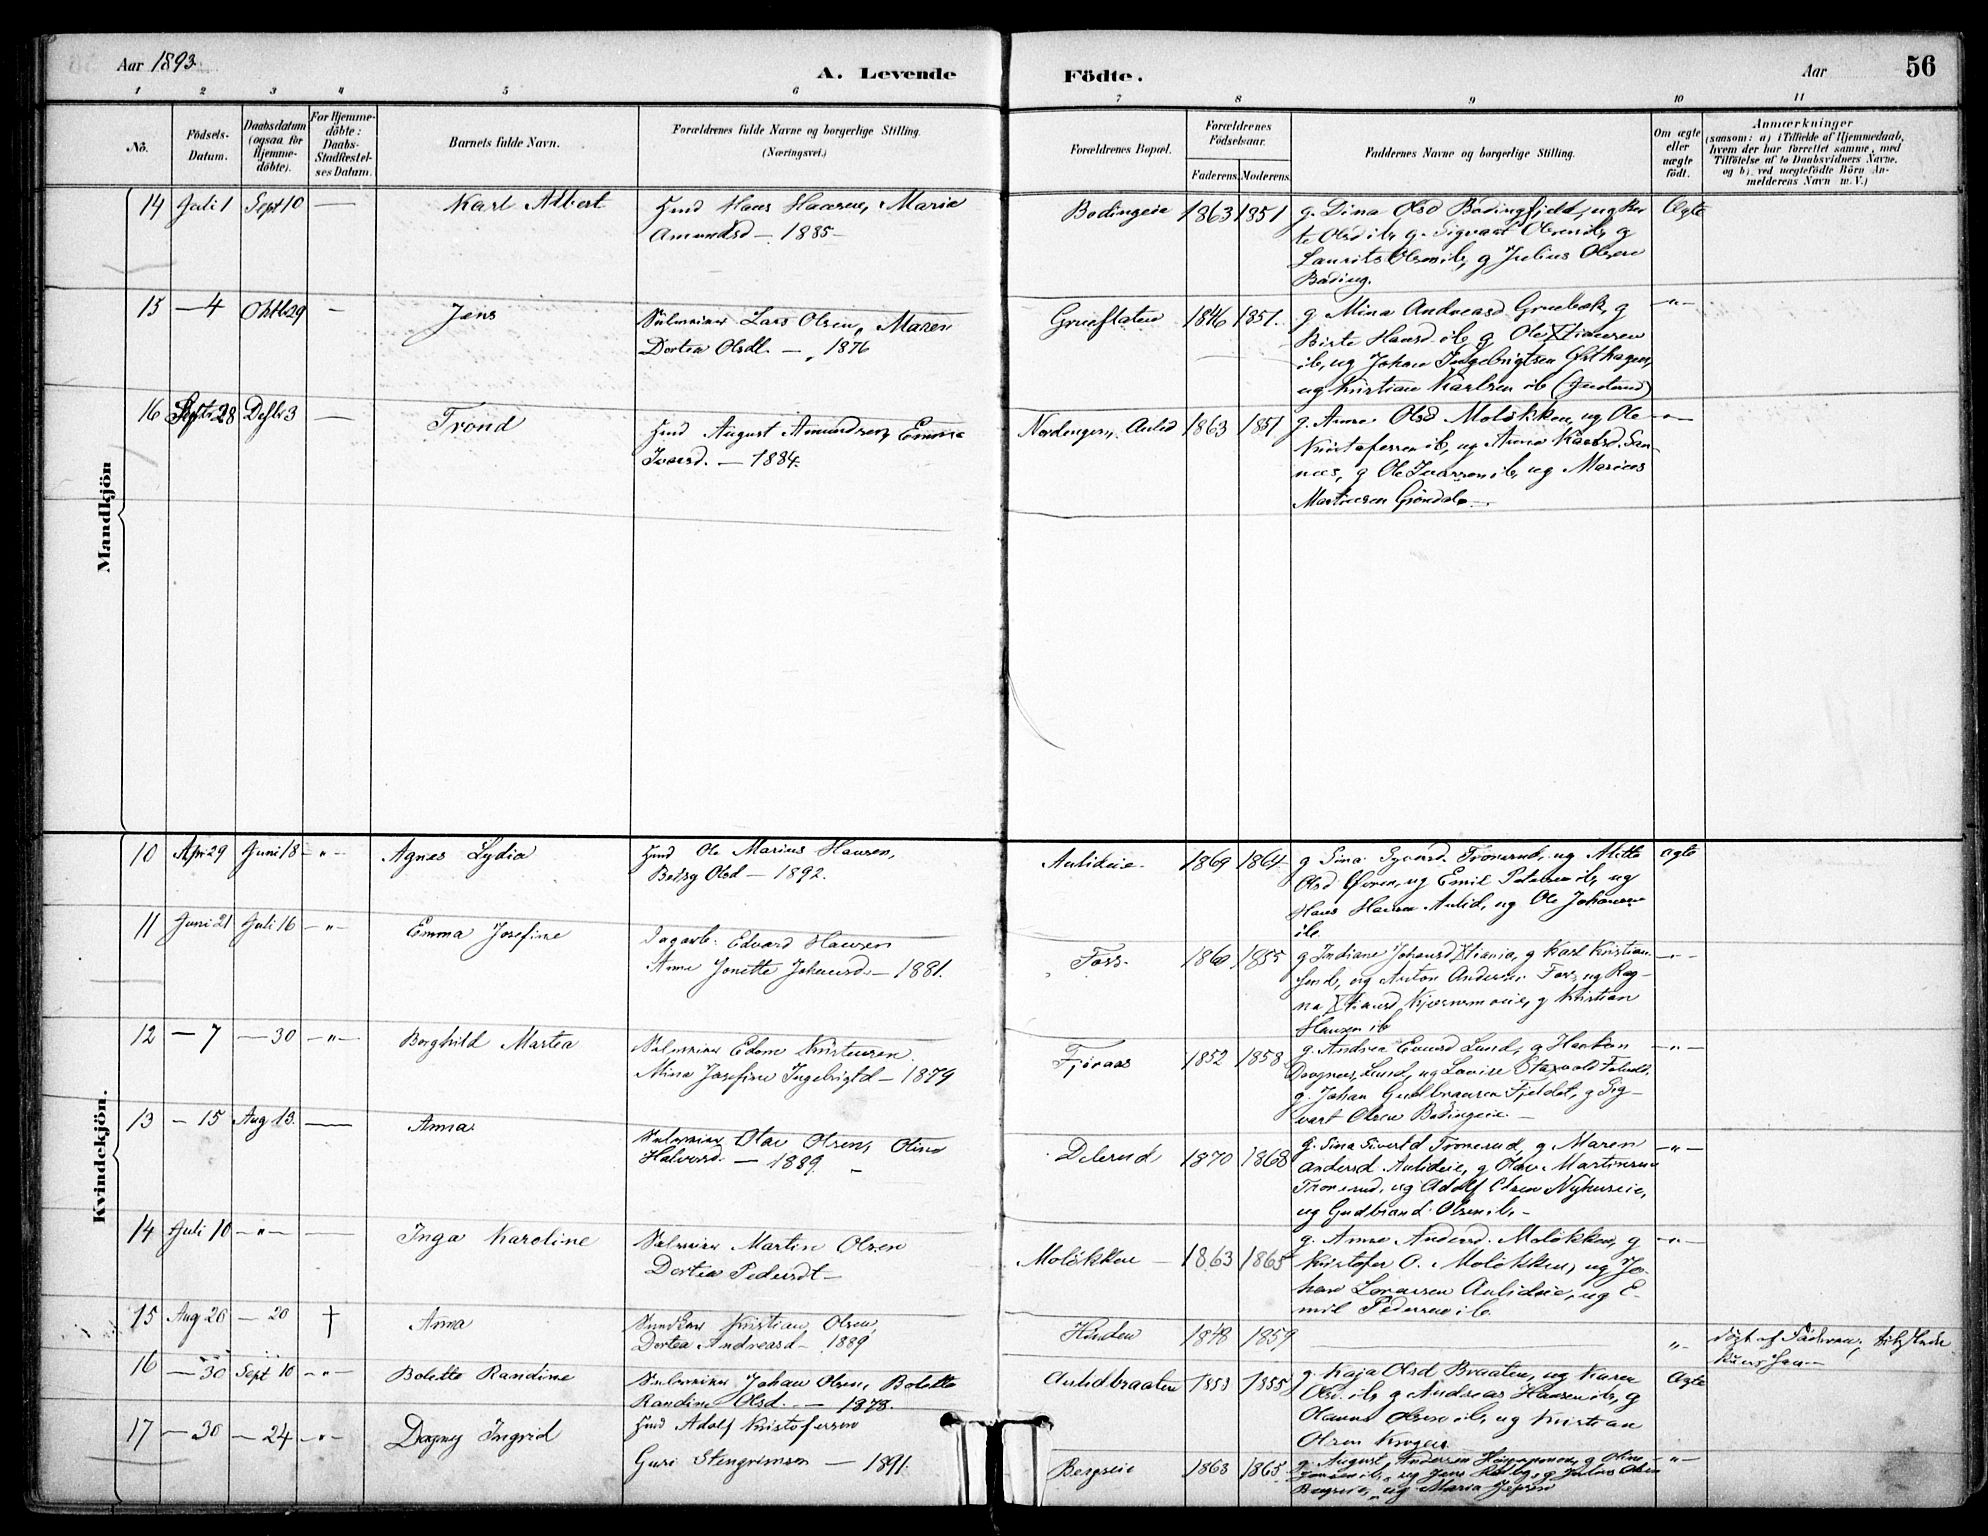 Aar 1893.
A. Levende
Födte.
Aar
56
1 2 3 4 5 6 7 8 9 10 11
No.
Födsels-
Datum.
Daabsdatum
(ogsaa for
Hjemme-
döbte).
For Hjemme-
döbte:
Daabs-
Stadfæstel-
ses Datum.
Barnets fulde Navn.
Forældrenes fulde Navne og borgerlige Stilling.
(Næringsvei.)
Forældrenes Bopæl.
Forældrenes
Födselsaar.
Faderens. Moderens.
Faddernes Navne og borgerlige Stilling.
Om ægte
eller
uægte
födt.
Anmærkninger
(saasom: a) i Tilfælde af Hjemmedaab,
hvem der har forrettet samme, med
Tilföielse af to Daabsvidners Navne.
og b) ved uægtefödte Börn An-
melderens Navn m. V.)
Mandkjön
14 Juli 1 Sept 10 — Karl Albert
Hans Hansen, Marie
Amundsd — 1885 —
Bodingeie 1863 1851
g. Dina Olsd Bodingfjeld, ug Ber
te Olsd ib, g. Sigvart Olsen ib, g
Laurits Olsen ib, g Julius Olsen
Boding.
Ægte
15 — 4 Oktb 29 — Jens
Lars Olsen, Maren
Dortea Olsdt. — 1876
Grueflaten 1846 1851.
g Mina Andreasd Gruebæk, g
Birte Hansd ib, g Ole Xtiansen
ib, ug Johan Ingebrigtsen Østhagen,
ug Kristian Karlsen ib
—"—
16 Septr 28 Decbr 3 — Trond
August Amundsen, Emma
Ivarsd. — 1884.
Nordengen, Aulid 1863 1851
g. Anne Olsd Moløkken, ug Ole
Kristofersen ib, ug Anna
g Ole Ivarsen ib, ug Marius
Martinsen Grøndal —
—"—
Kvindekjön.
10 Apr 29 Juni 18 —"— Agnes Lydia
Ole Marius Hansen,
Betsy Olsd — 1892.
Aulideie 1869 1864
g Sina Syversd. Tronerud, ug Mette
Olsd Øveren, ug Emil Petersen ib, ug
Hans Hansen Aulid, ug Ole Johansen
ib.
ægte
11 Juni 21 Juli 16 —"— Emma Josefine
Dagarb. Edvard Hansen
Anne Jonette Johansd — 1881.
Foss 1860 1855
g Indiane Johansd Xtiania, g Karl Kristian
ug Anton Andersen Foss, ug Rag-
na Xtiansd g Kristian
Hansen ib
—"—
12 — 7 — 30 —"— Borghild Martea
Edom Kristensen.
Mina Josefine Ingebrigtd — 1879
Fjøraas 1852 1858
g. Andrea Evensd Lund, g Haakon
Lund, ug Lovise
g. Johan Gudbransen Fjeldet, g Sig-
vart Olsen Bodingeie. —
—"—
13 — 15 Aug 13. — Anna
Olav Olsen, Oline
Halvorsd. — 1889 —
Delerud 1870 1868
g. Sina Sivertd Tronerud, g Maren
Andersd Aulideie, g Olav Martinsen
Tronerud, ug Adolf Olsen Nyhuseie,
ug Gudbrand Olsen ib —
—"—
14 Juli 10 —"— — Inga Karoline
Martin Olsen
Dortea Pedersdt —
Moløkken — 1863 1865
g. Anne Andersd. Moløkken, g
Kristofer O. Moløkken, ug Jo-
han Lorassen Aulideie, ug E-
mil Pedersen ib.
—"—
15 Aug 20 — 20 † Anna
Kristian Olsen,
Dortea Andreasd — 1889
1848 1859
"—
døbt af Faderen,
16 — 30 Sept 10 —"— Bolette Randine
Johan Olsen, Bolette
Randine Olsd. — 1878.
Aulidbraaten 1853 1855
g. Kaja Olsd Braaten, ug Karen
Olsd ib, g Andreas Hansen ib, g
Olaus Olsen ib, ug Kristian
Olsen
Ægte
17 — 30 — 24 —"— Dagny Ingrid
Adolf Kristofersen
Guri Stengrimsen — 1891.
Bergseie 1863 1865
g. August Andersen
ug Jens g Julius Olsen
ug Maria Jepsen
—"—